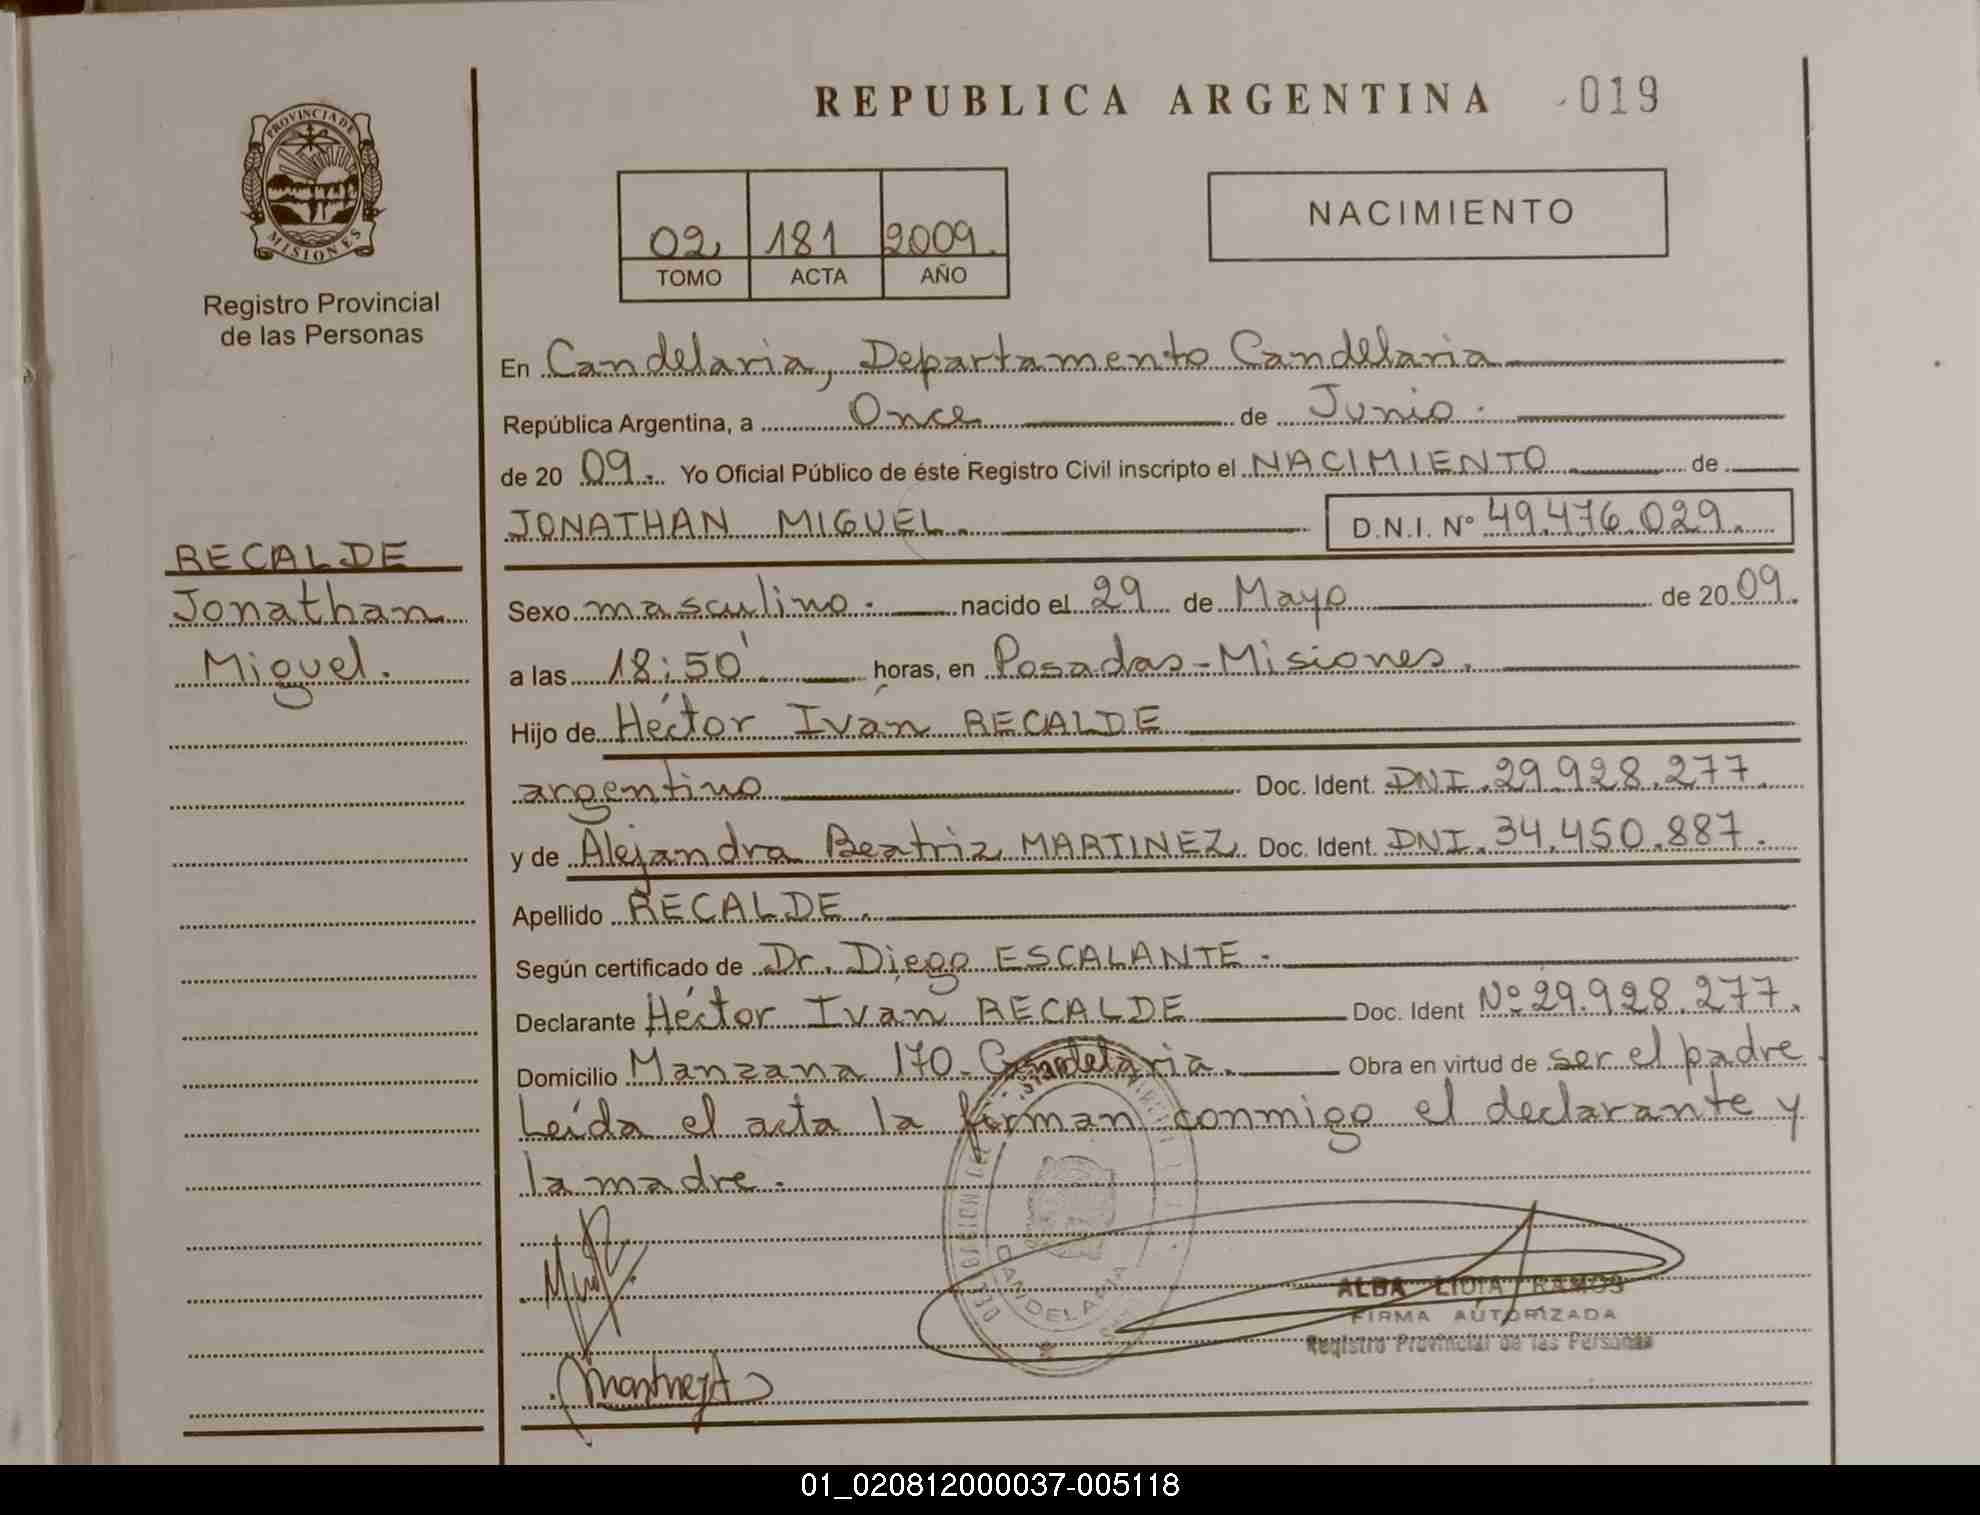 REPUBLICA ARGENTINA 019
PROVINCIA DE
MISIONES
Registro Provincial
de las Personas
NACIMIENTO
02 181 2009.
TOMO ACTA AÑO
En Candelaria, Departamento Candelaria
República Argentina, a Once de Junio.
de 20 09. Yo Oficial Público de éste Registro Civil inscripto el NACIMIENTO de
JONATHAN MIGUEL. D.N.I. Nº 49.476.029.
RECALDE
Jonathan
Miguel.
Sexo masculino. nacido el 29 de Mayo de 20 09.
a las 18:50' horas, en Posadas-Misiones.
Hijo de Héctor Iván RECALDE
argentino Doc. Ident. DNI.29.928.277.
y de Alejandra Beatriz MARTINEZ Doc. Ident. DNI.34.450.887.
Apellido RECALDE.
Según certificado de Dr. Diego ESCALANTE.
Declarante Héctor Ivan RECALDE Doc. Ident Nº 29.928.277.
Domicilio Manzana 170-Candelaria. Obra en virtud de ser el padre.
Leída el acta la firman conmigo el declarante y
la madre.
CANDELARIA
ALBA LIDIA RAMOS
FIRMA AUTORIZADA
Registro Provincial de las Personas
01_020812000037-005118